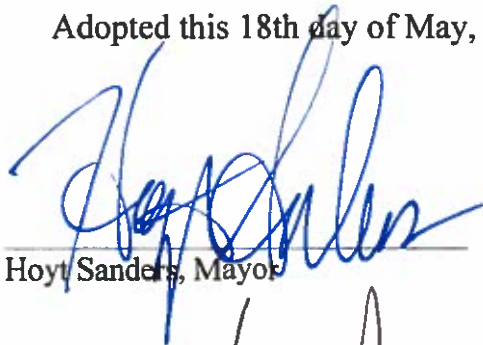 Adopted this 18th day of May,
Hoyt Sanders
Hoyt Sanders, Mayor